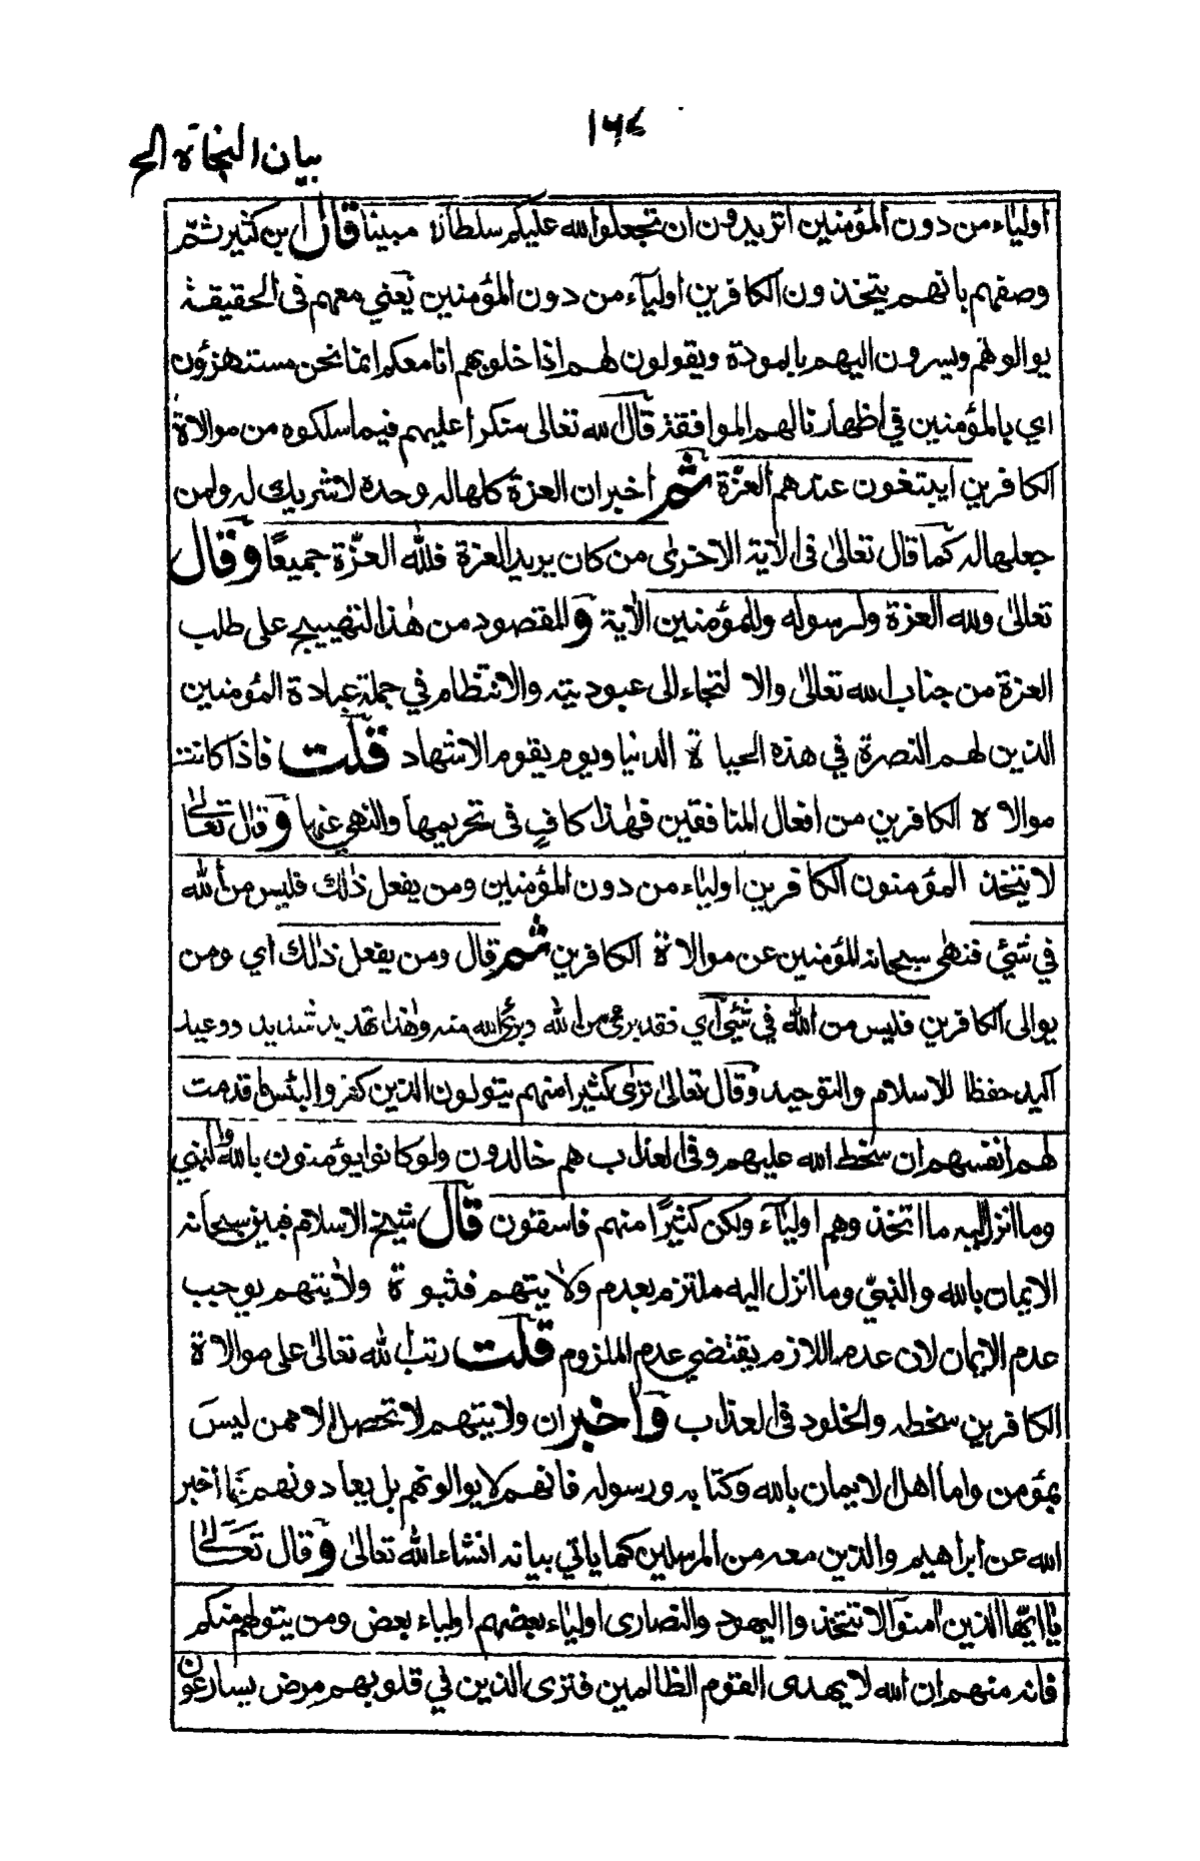 ١٦٤
بيان النجاة الخ
اولياء من دون المؤمنين اتريدون ان تجعلوا لله عليكم سلطانا مبينا قال ابن كثير ثم
وصفهم بانهم يتخذون الكافرين اولياء من دون المؤمنين يعني معهم في الحقيقة
يوالوهم ويسرون اليهم بالمودة ويقولون لهم اذا خلوا بهم انا معكم انما نحن مستهزؤن
اي بالمؤمنين في اظهارنا لهم الموافقة قال الله تعالى منكرا عليهم فيما سلكوه من موالاة
الكافرين ايبتغون عندهم العزّة ثم اخبر ان العزة كلها له وحده لا شريك له ولمن
جعلها له كما قال تعالىٰ في الاٰية الاخرىٰ من كان يريد العزة فلله العزّة جميعًا وقال
تعالىٰ ولله العزة ولرسوله وللمؤمنين الاٰية والمقصود من هٰذا التهييج على طلب
العزة من جناب الله تعالىٰ والالتجاء الى عبوديته والانتظام في جملة عبادة المؤمنين
الذين لهم النصرة في هذه الحياة الدنيا ويوم يقوم الاشهاد قلت فاذا كانت
موالاة الكافرين من افعال المنافقين فهٰذا كافٍ في تحريمها والنهي عنها وقال تعالىٰ
لا يتخذ المؤمنون الكافرين اولياء من دون المؤمنين ومن يفعل ذٰلك فليس من الله
في شيئ فنهى سبحانه المؤمنين عن موالاة الكافرين ثم قال ومن يفعل ذٰلك اي ومن
يوالي الكافرين فليس من الله في شيئ اي فقد برئ من الله وبرئ الله منه وهٰذا تهديد شديد ووعيد
اكيد حفظا للاسلام والتوحيد وقال تعالىٰ ترٰى كثيرا منهم يتولون الذين كفروا لبئس ما قدمت
لهم انفسهم ان سخط الله عليهم وفي العذاب هم خالدون ولو كانوا يؤمنون بالله والنبي
وما انزل اليه ما اتخذوهم اولياء ولكن كثيرًا منهم فاسقون قال شيخ الاسلام فبين سبحانه
الايمان بالله والنبيّ وما انزل اليه ملتزم بعدم ولايتهم فثبوة ولايتهم يوجب
عدم الايمان لان عدم اللازم يقتضي عدم الملزوم قلت رتب الله تعالىٰ على موالاة
الكافرين سخطه والخلود في العذاب واخبر ان ولايتهم لا تحصل الا ممن ليس
بمؤمن واما اهل الايمان بالله وكتابه ورسوله فانهم لا يوالونهم بل يعادونهم كما اخبر
الله عن ابراهيم والذين معه من المرسلين كما ياتي بيانه انشاء الله تعالىٰ وقال تعالىٰ
يٰا ايّها الذين امنوا لا تتخذوا اليهود والنصارى اولياء بعضهم اولياء بعض ومن يتولهم منكم
فانه منهم ان الله لا يهدي القوم الظالمين فترى الذين في قلوبهم مرض يسارعون